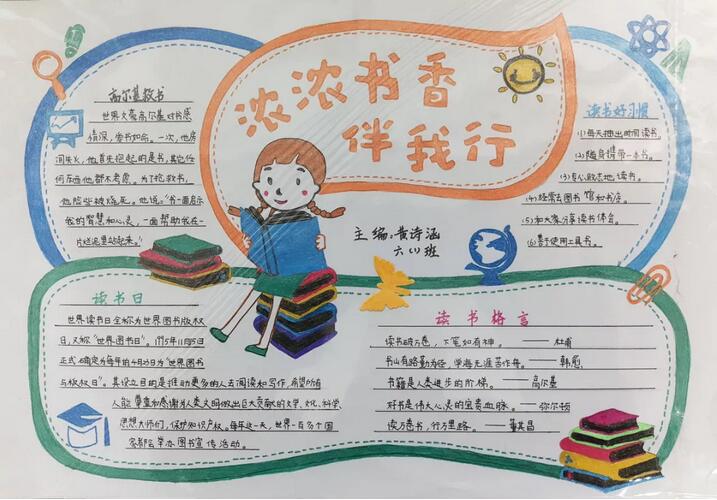 浓浓书香
伴我行
主编:黄诗涵
六(1)班
高尔基救书
世界文豪高尔基对书感
情深,爱书如命。一次,他房
间失火,他首先抱起的是书,其它任
何东西他都不考虑。为了抢救书,
他险些被烧死。他说:"书一面启示
我的智慧和心灵,一面帮助我在一
片烂泥里站起来。"
读书好习惯
(1)每天抽出时间读书。
(2)随身携带一本书。
(3)专心致志地读书。
(4)经常去图书馆和书店。
(5)和大家分享读书体会。
(6)善于使用工具书。
读书日
世界读书日全称为世界图书版权
日,又称"世界图书日"。1995年11月15日
正式确定为每年的4月23日为"世界图书
与版权日"。其设立目的是推动更多的人去阅读和写作,希望所有
人能尊重和感谢为人类文明做出巨大贡献的文学、文化、科学、
思想大师们,保护知识产权。每年这一天,世界一百多个国
家都会举办图书宣传活动。
读书格言
读书破万卷,下笔如有神。——杜甫
书山有路勤为径,学海无涯苦作舟。——韩愈
书籍是人类进步的阶梯。——高尔基
好书是伟大心灵的宝贵血脉。——弥尔顿
读万卷书,行万里路。——董其昌